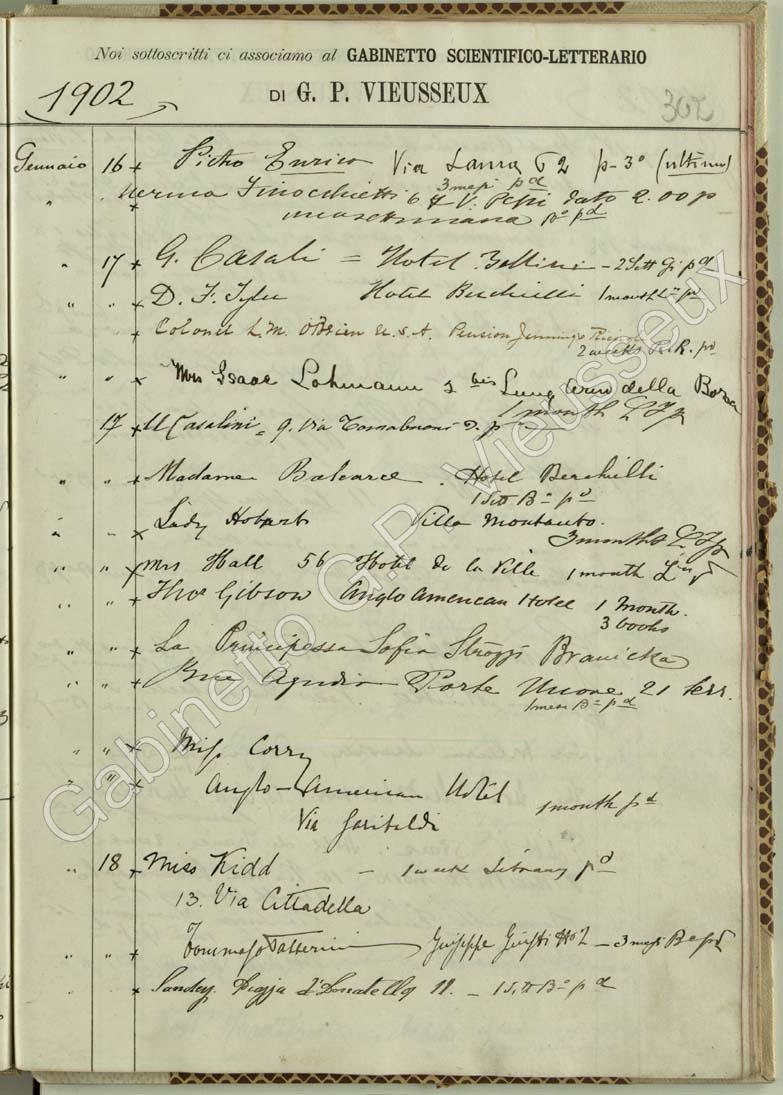 Noi sottoscritti ci associamo al GABINETTO SCIENTIFICO-LETTERARIO
1902
DI G. P. VIEUSSEUX
302
Gennaio 16 Pietro Enrico Via Lamarmora p-3° (ultimo)
3 mesi pd
Finocchietti 67 V. Pepi dato 2.00 p
una settimana Bo pd
" 17 G. Casali = Hotel Bellini - 2 Sett Gi pd
" " D. F. Tyler Hotel Berchielli 1 month Ln pd
Colonel L.M. O'Brien U.S.A. Pension Jennings Riccioli
2 weeks pd
" " Mrs Isaac Lohmann 2 bis Lung'Arno della Borsa
1 month
17 U Casalini = 9. Via Tornabuoni
" " Madame Balcarce. Hotel Berchielli
1 Sett Bo pd
" " Lady Hobart Villa Montauto.
3 months
" " Mrs Hall 56 Hotel de la Ville 1 month
" " Thos Gibson Anglo American Hotel 1 Month.
3 books
" " La Principessa Sofia Strozzi Branicka
" " Porte Nuove 21 terr.
1 mese Bo pd
" " Miss Corry
" " Anglo-American Hotel 1 month pd
Via Garibaldi
" 18 Miss Kidd - 1 week Library pd
13. Via Cittadella
" " Tommaso Passerini Giuseppe Giusti No 2 - 3 mesi Bo pd
" " Sandey. Piazza d'Donatello 11. - 1 Sett Bo pd
Gabinetto G.P. Vieusseux